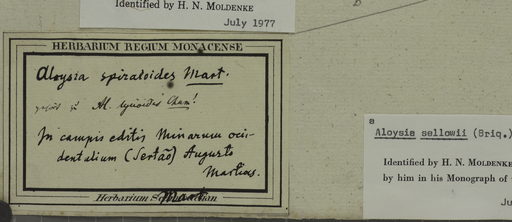 Identified by H. N. MOLDENKE
July 1977
HERBARIUM REGIUM MONACENSE
Aloysia spiraloides Mart.
Al. lycioides Cham!
In campis editis Minarum occi-
dentalium (Sertão) Augusto
Martius.
Herbarium Martian
a
Aloysia sellowii (Briq.)
Identified by H. N. MOLDENKE
by him in his Monograph of
Ju